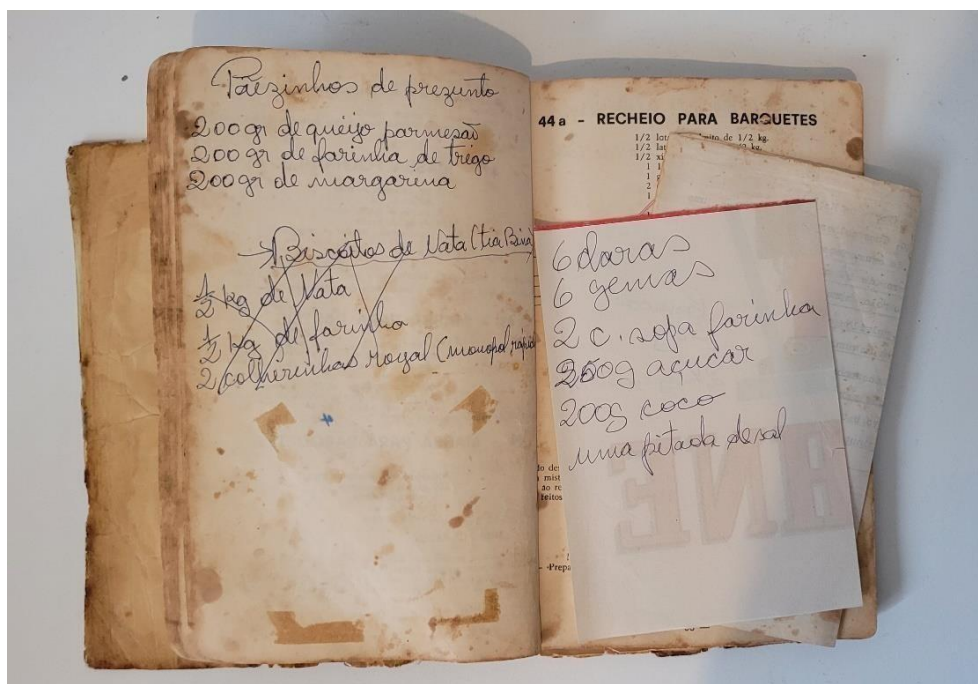 Pãezinhos de prezunto
200gr de queijo parmesão
200 gr de farinha de trigo
200 gr de margarina
→ Biscoitos de Nata (tia Bina)
1/2 kg de Nata
1/2 kg de farinha
2 colherinhas royal (monopol,
44 a - RECHEIO PARA BARQUETES
1/2
de 1/2 kg.
1/2
kg.
1/2
1
1
2
1
6 claras
6 gemas
2 c. sopa farinha
250g açucar
200g coco
uma pitada de sal